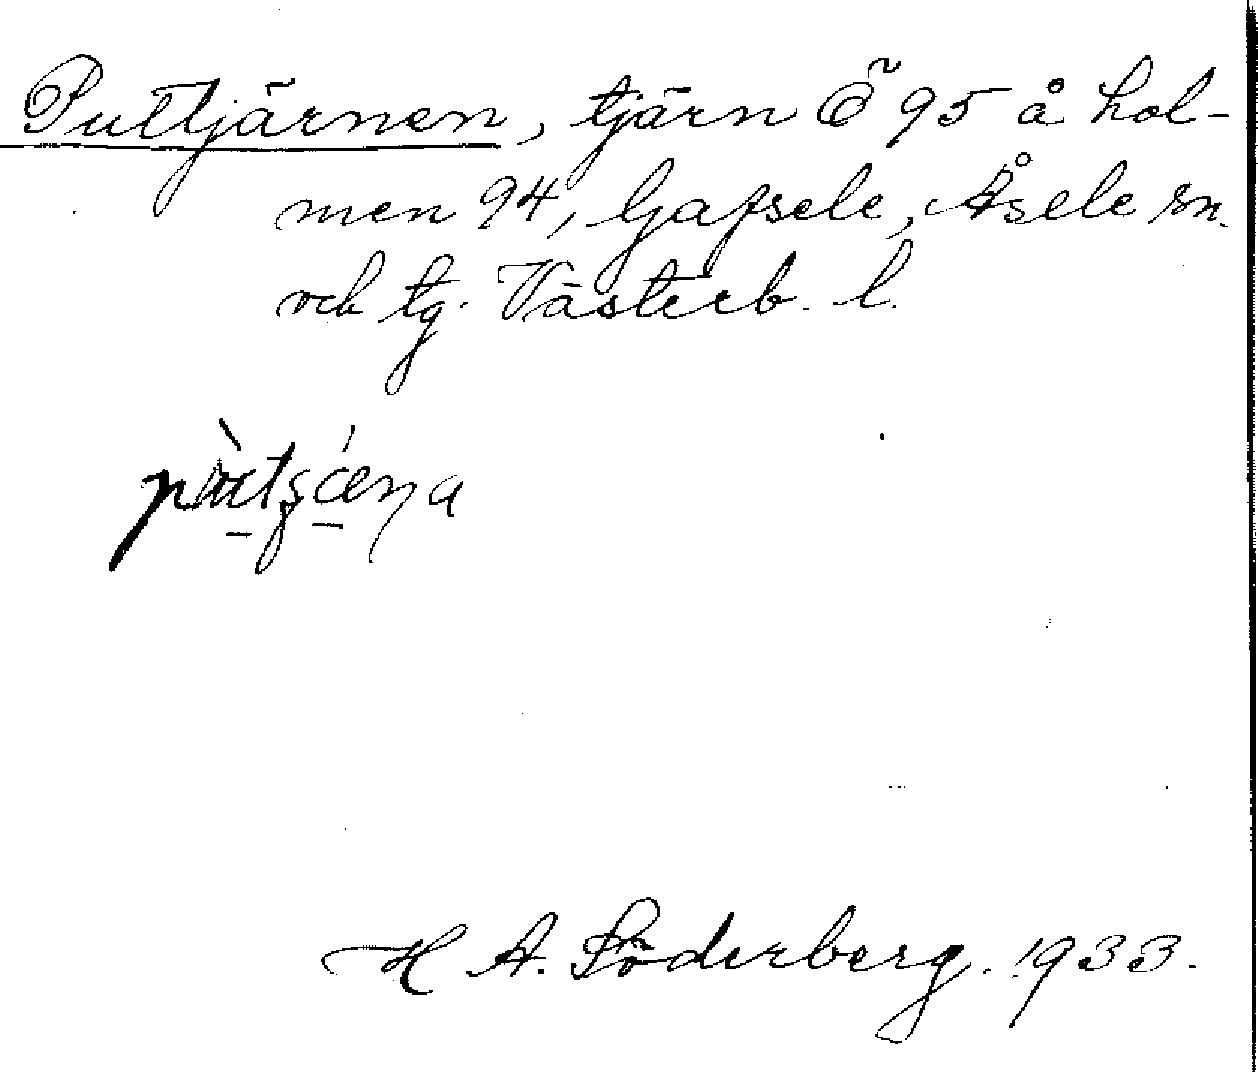 Puttjärnen, tjärn Ö 95 å hol-
men 94, Gafsele, Åsele sn.
och tg. Västerb. l.
H A. Söderberg. 1933.